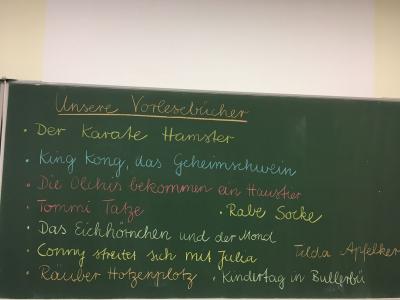 Unsere Vorlesebücher
• Der Karate Hamster
• King Kong, das Geheimschwein
• Die Olchis bekommen ein Haustier
• Tommi Tatze • Rabe Socke
• Das Eichhörnchen und der Mond
• Conny streitet sich mit Julia Tilda Apfelker
• Räuber Hotzenplotz • Kindertag in Bullerbü